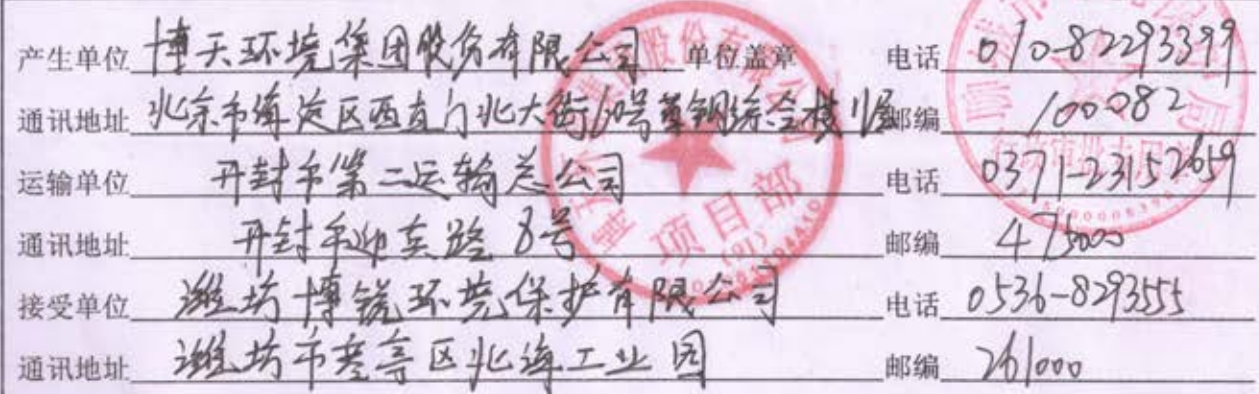 产生单位 博天环境集团股份有限公司 单位盖章 电话 010-82293399
通讯地址 北京市海淀区西直门北大街60号首钢综合楼12层 邮编 100082
运输单位 开封市第二运输总公司 电话 0371-23152659
通讯地址 开封市迎宾路8号 邮编 475000
接受单位 潍坊博锐环境保护有限公司 电话 0536-8293555
通讯地址 潍坊市寒亭区北海工业园 邮编 261000
项目部
(01)